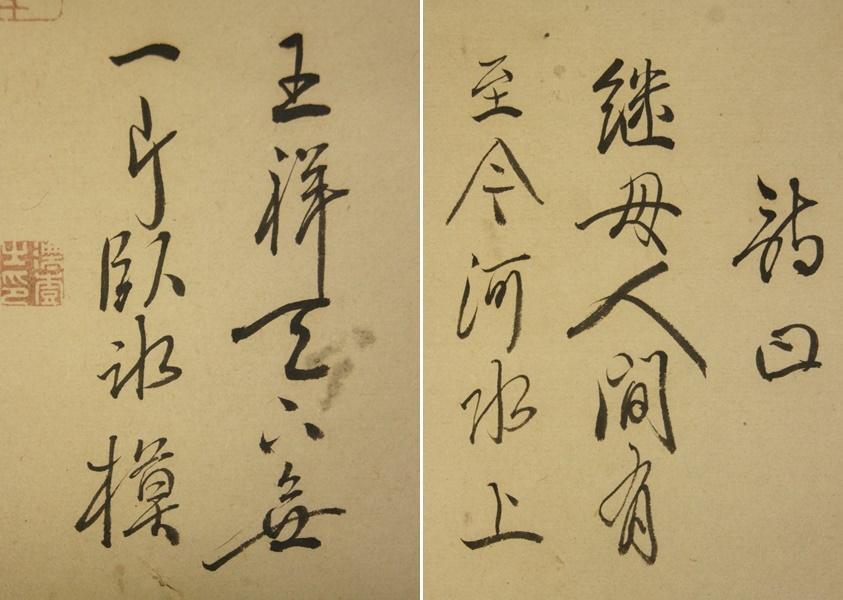 詩曰
继母人間有
至今河水上
王祥天下無
一片臥冰模